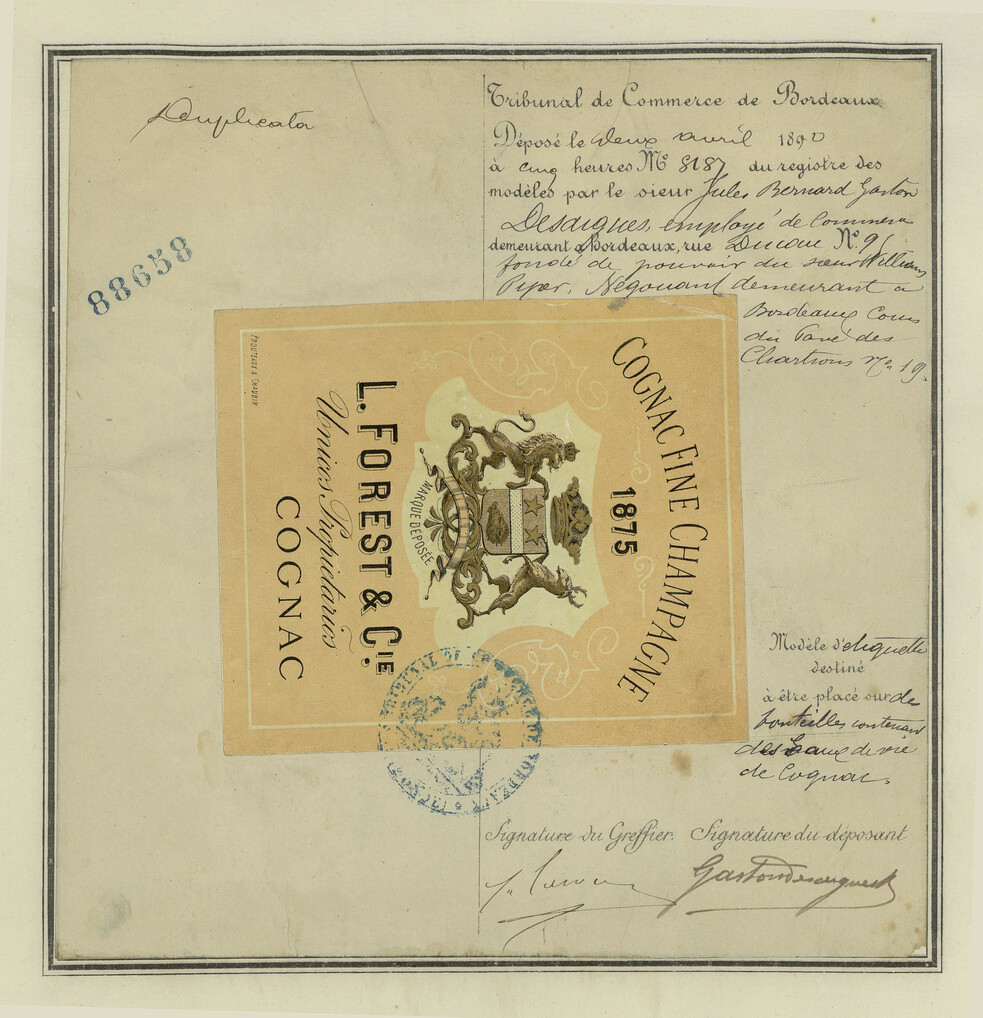 Duplicata
88658
Tribunal de Commerce de Bordeaux
Déposé le deux avril 1890
à cinq heures Nº 8187 du registre des
modèles par le sieur Jules Bernard Gaston
employé de Commerce
demeurant à Bordeaux, rue Nº 9
fondé de pouvoir du sieur William
Négociant demeurant à
Bordeaux Cours
du Pavé des
Chartrons nº 19.
COGNAC FINE CHAMPAGNE
1875
MARQUE DEPOSÉE
L. FOREST & CIE.
Unicos Propietarios
COGNAC
PROUTEAUX & CHAUVIN
Modèle d'étiquette
destiné
à être placé sur des
bouteilles contenant
des Eaux de vie
de Cognac.
TRIBUNAL DE COMMERCE DE BORDEAUX
Signature du Greffier. Signature du déposant